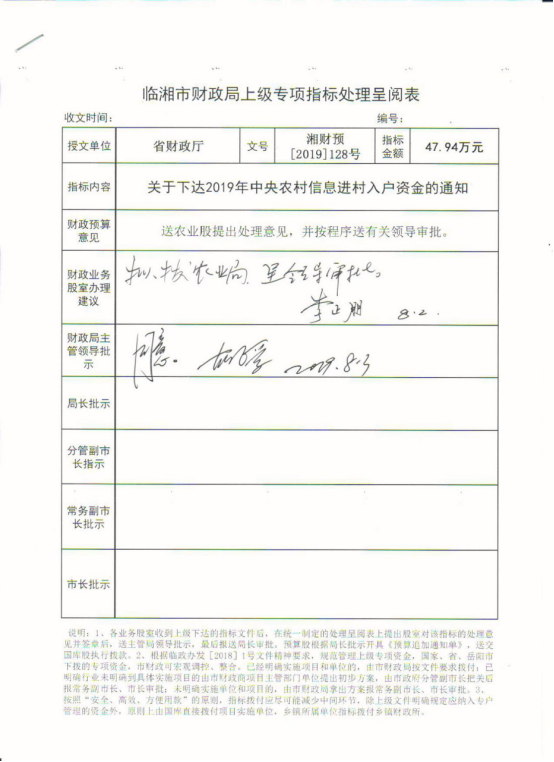 临湘市财政局上级专项指标处理呈阅表
收文时间： 编号：
授文单位 省财政厅 文号 湘财预[2019]128号 指标金额 47.94万元
指标内容 关于下达2019年中央农村信息进村入户资金的通知
财政预算意见 送农业股提出处理意见，并按程序送有关领导审批。
财政业务股室办理建议 拟拨农业局，呈领导审批。
李正朋 8.2.
财政局主管领导批示 同意。 2019.8.3
局长批示
分管副市长指示
常务副市长批示
市长批示
说明：1、各业务股室收到上级下达的指标文件后，在统一制定的处理呈阅表上提出股室对该指标的处理意
见并签章后，送主管局领导批示，最后报送局长审批。预算股根据局长批示开具《预算追加通知单》，送交
国库股执行拨款。2、根据临政办发［2018］1号文件精神要求，规范管理上级专项资金，国家、省、岳阳市
下拨的专项资金，市财政可宏观调控、整合。已经明确实施项目和单位的，由市财政局按文件要求拨付；已
明确行业未明确到具体实施项目的由市财政商项目主管部门单位提出初步方案，由市政府分管副市长把关后
报常务副市长、市长审批；未明确实施单位和项目的，由市财政局拿出方案报常务副市长、市长审批。3、
按照“安全、高效、方便用款”的原则，指标拨付应尽可能减少中间环节，除上级文件明确规定应纳入专户
管理的资金外，原则上由国库直接拨付项目实施单位，乡镇所属单位指标拨付乡镇财政所。